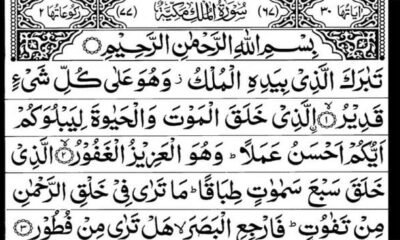 اٰیَاتُهَا ٣٠ (٦٧) سُوْرَةُ الْمُلْكِ مَكِّيَّةٌ (٧٧) رُكُوْعَاتُهَا ٢
بِسْمِ اللّٰهِ الرَّحْمٰنِ الرَّحِيْمِ
تَبٰرَكَ الَّذِىْ بِيَدِهِ الْمُلْكُ ز وَهُوَ عَلٰى كُلِّ شَىْءٍ
قَدِيْرُ ۨ ۙ﴿١﴾ الَّذِىْ خَلَقَ الْمَوْتَ وَالْحَيٰوةَ لِيَبْلُوَكُمْ
اَيُّكُمْ اَحْسَنُ عَمَلًا ؕ وَهُوَ الْعَزِيْزُ الْغَفُوْرُ ۙ﴿٢﴾ الَّذِىْ
خَلَقَ سَبْعَ سَمٰوٰتٍ طِبَاقًا ؕ مَا تَرٰى فِىْ خَلْقِ الرَّحْمٰنِ
مِنْ تَفٰوُتٍ ؕ فَارْجِعِ الْبَصَرَ ۙ هَلْ تَرٰى مِنْ فُطُوْرٍ ﴿٣﴾